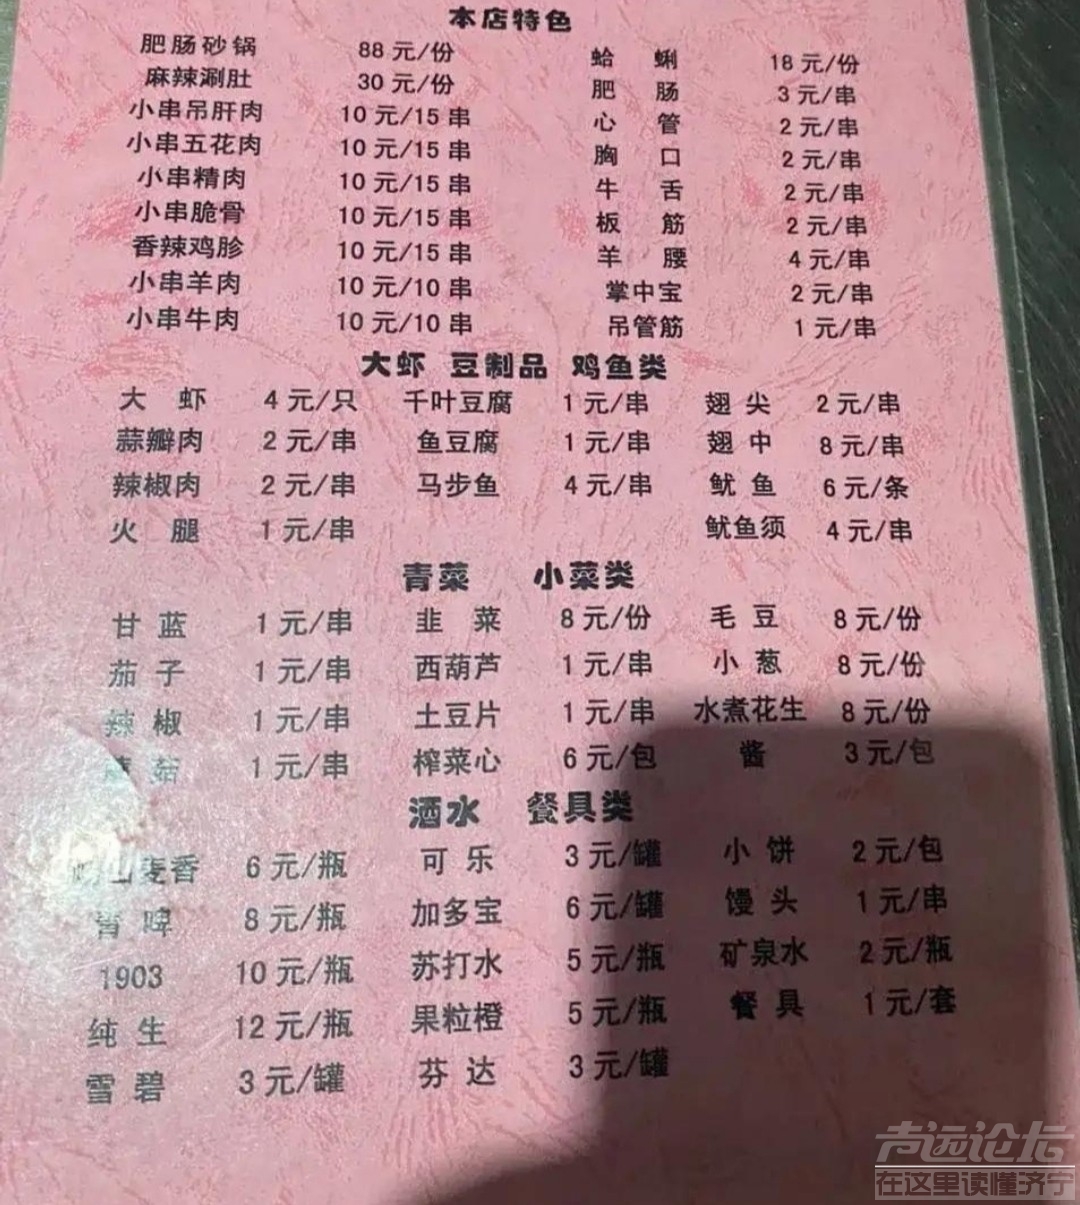 本店特色
肥肠砂锅 88元/份 蛤蜊 18元/份
麻辣涮肚 30元/份 肥肠 3元/串
小串吊肝肉 10元/15串 心管 2元/串
小串五花肉 10元/15串 胸口 2元/串
小串精肉 10元/15串 牛舌 2元/串
小串脆骨 10元/15串 板筋 2元/串
香辣鸡胗 10元/15串 羊腰 4元/串
小串羊肉 10元/10串 掌中宝 2元/串
小串牛肉 10元/10串 吊管筋 1元/串
大虾 豆制品 鸡鱼类
大虾 4元/只 千叶豆腐 1元/串 翅尖 2元/串
蒜瓣肉 2元/串 鱼豆腐 1元/串 翅中 8元/串
辣椒肉 2元/串 马步鱼 4元/串 鱿鱼 6元/条
火腿 1元/串 鱿鱼须 4元/串
青菜 小菜类
甘蓝 1元/串 韭菜 8元/份 毛豆 8元/份
茄子 1元/串 西葫芦 1元/串 小葱 8元/份
辣椒 1元/串 土豆片 1元/串 水煮花生 8元/份
菇 1元/串 榨菜心 6元/包 酱 3元/包
酒水 餐具类
山麦香 6元/瓶 可乐 3元/罐 小饼 2元/包
青啤 8元/瓶 加多宝 6元/罐 馒头 1元/串
1903 10元/瓶 苏打水 5元/瓶 矿泉水 2元/瓶
纯生 12元/瓶 果粒橙 5元/瓶 餐具 1元/套
雪碧 3元/罐 芬达 3元/罐
声远论坛
在这里读懂济宁